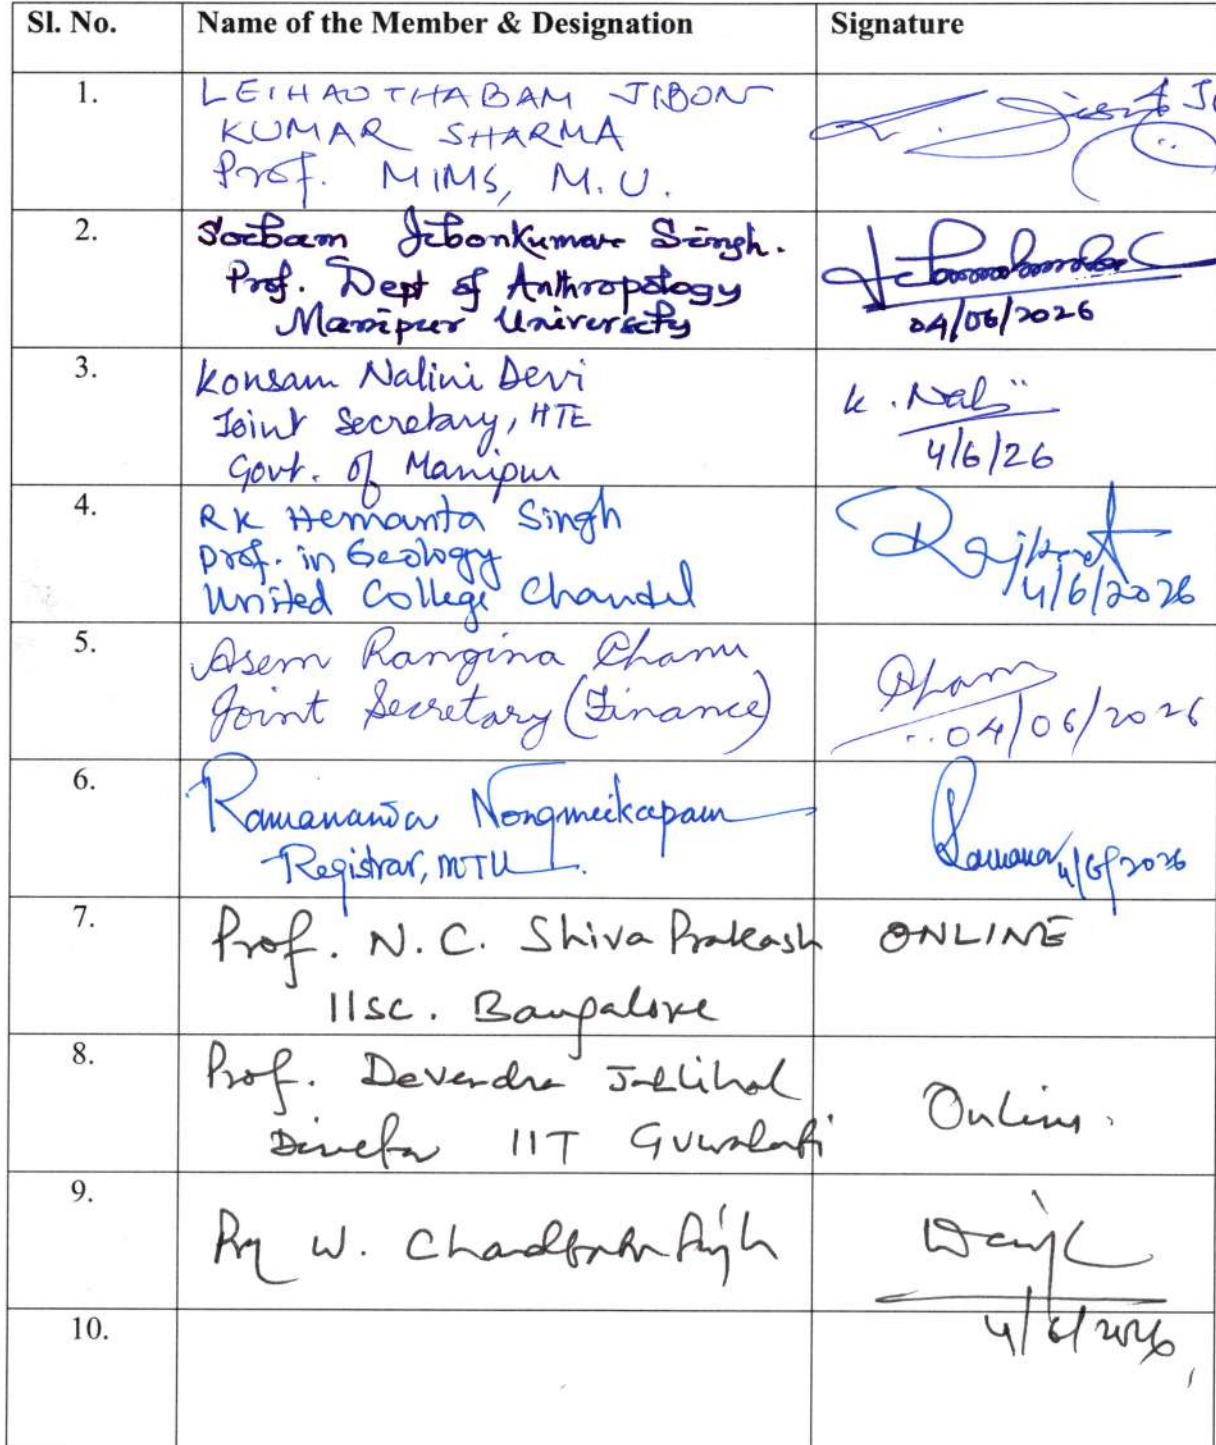 Sl. No. Name of the Member & Designation Signature
1. LEIHAOTHABAM JIBON
KUMAR SHARMA
Prof. MIMS, M.U.
2. Soibam Jibonkumar Singh.
Prof. Dept of Anthropology
Manipur University
04/06/2026
3. Konsam Nalini Devi
Joint Secretary, HTE
Govt. of Manipur
K. Nalini
4/6/26
4. RK Hemanta Singh
Prof. in Geology
United College Chandel
4/6/2026
5. Asem Rangina Chanu
Joint Secretary (Finance)
04/06/2026
6. Ramananda Nongmeikapam
Registrar, MTU
4/6/2026
7. Prof. N.C. Shiva Prakash ONLINE
IISC. Bangalore
8. Prof. Devendra Jalihal
Director IIT Guwahati
Online.
9. W. Chandbabu Singh
4/6/2026
10.